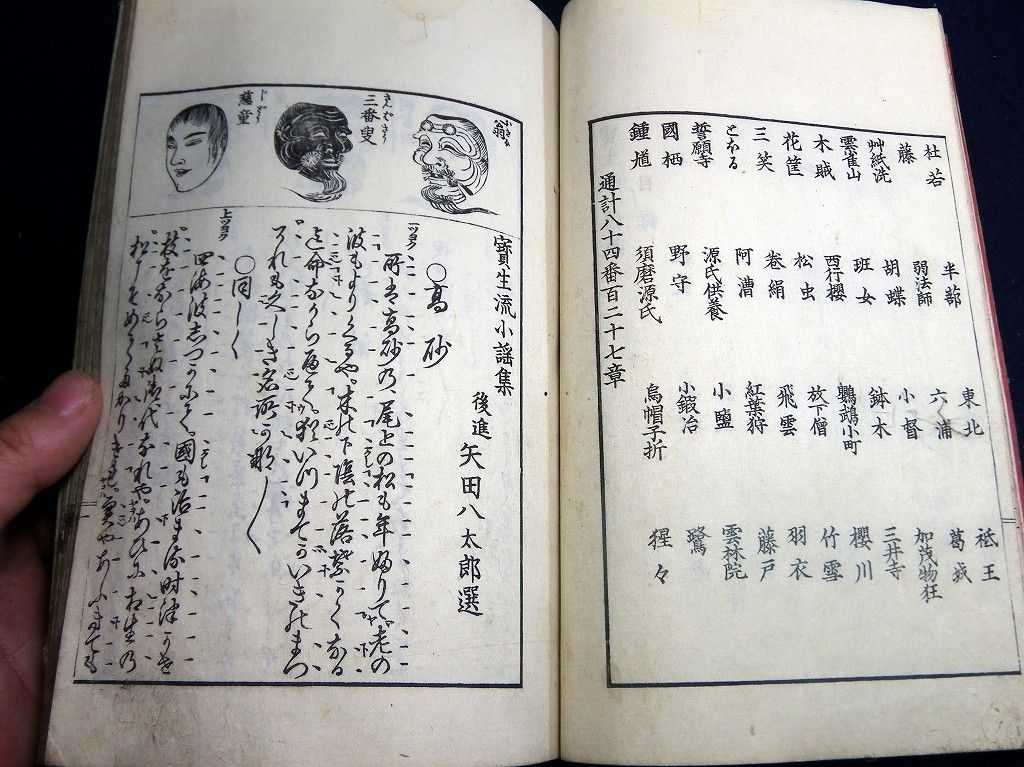 杜若 半蔀 東北 祇王
藤 弱法師 六浦 葛城
艸紙洗 胡蝶 小督 加茂物狂
雲雀山 班女 鉢木 三井寺
木賊 西行櫻 鸚鵡小町 櫻川
花筐 松虫 放下僧 竹雪
三笑 巻絹 飛雲 羽衣
とほる 阿漕 紅葉狩 藤戸
誓願寺 源氏供養 小鹽 雲林院
國栖 野守 小鍛冶 鷺
鍾馗 須磨源氏 烏帽子折 猩々
通計八十四番百二十七章
翁
三番叟
慈童
寳生流小謡集
後進 矢田八太郎選
○高砂
所は高砂乃、尾上の松も年婦りて。老の
波もよりくるや。木の下陰の落葉かくなる
迄命なからへて。猶いつまてかいきのまつ
それも久しき名所可那
○同しく
四海波しつかにて。國も治まる時津かせ
枝をならさぬ御代なれや。あひに相生の
松こそめてたかりけれ。実やあふきても